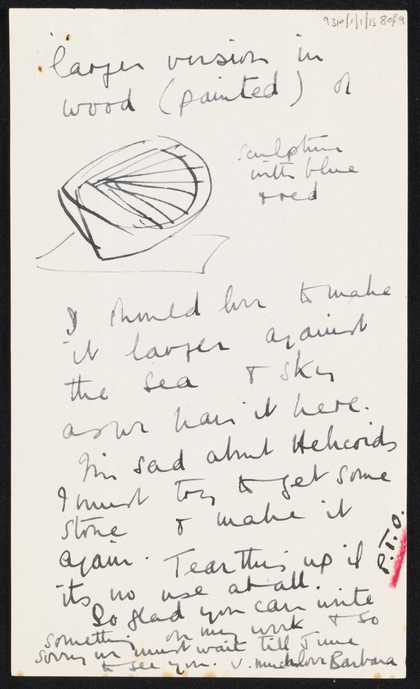 93p/1/1/15 8 of 9
larger version in
wood (painted) of
sculpture
with blue
& red
I should love to make
it larger against
the sea & sky
as we have it here.
I'm sad about Helicoids
I must try to get some
stone & make it
again. Tear this up if
its no use at all.
P.T.O.
So glad you can write
something on my work & so
sorry we must wait till June
to see you. v. much love Barbara